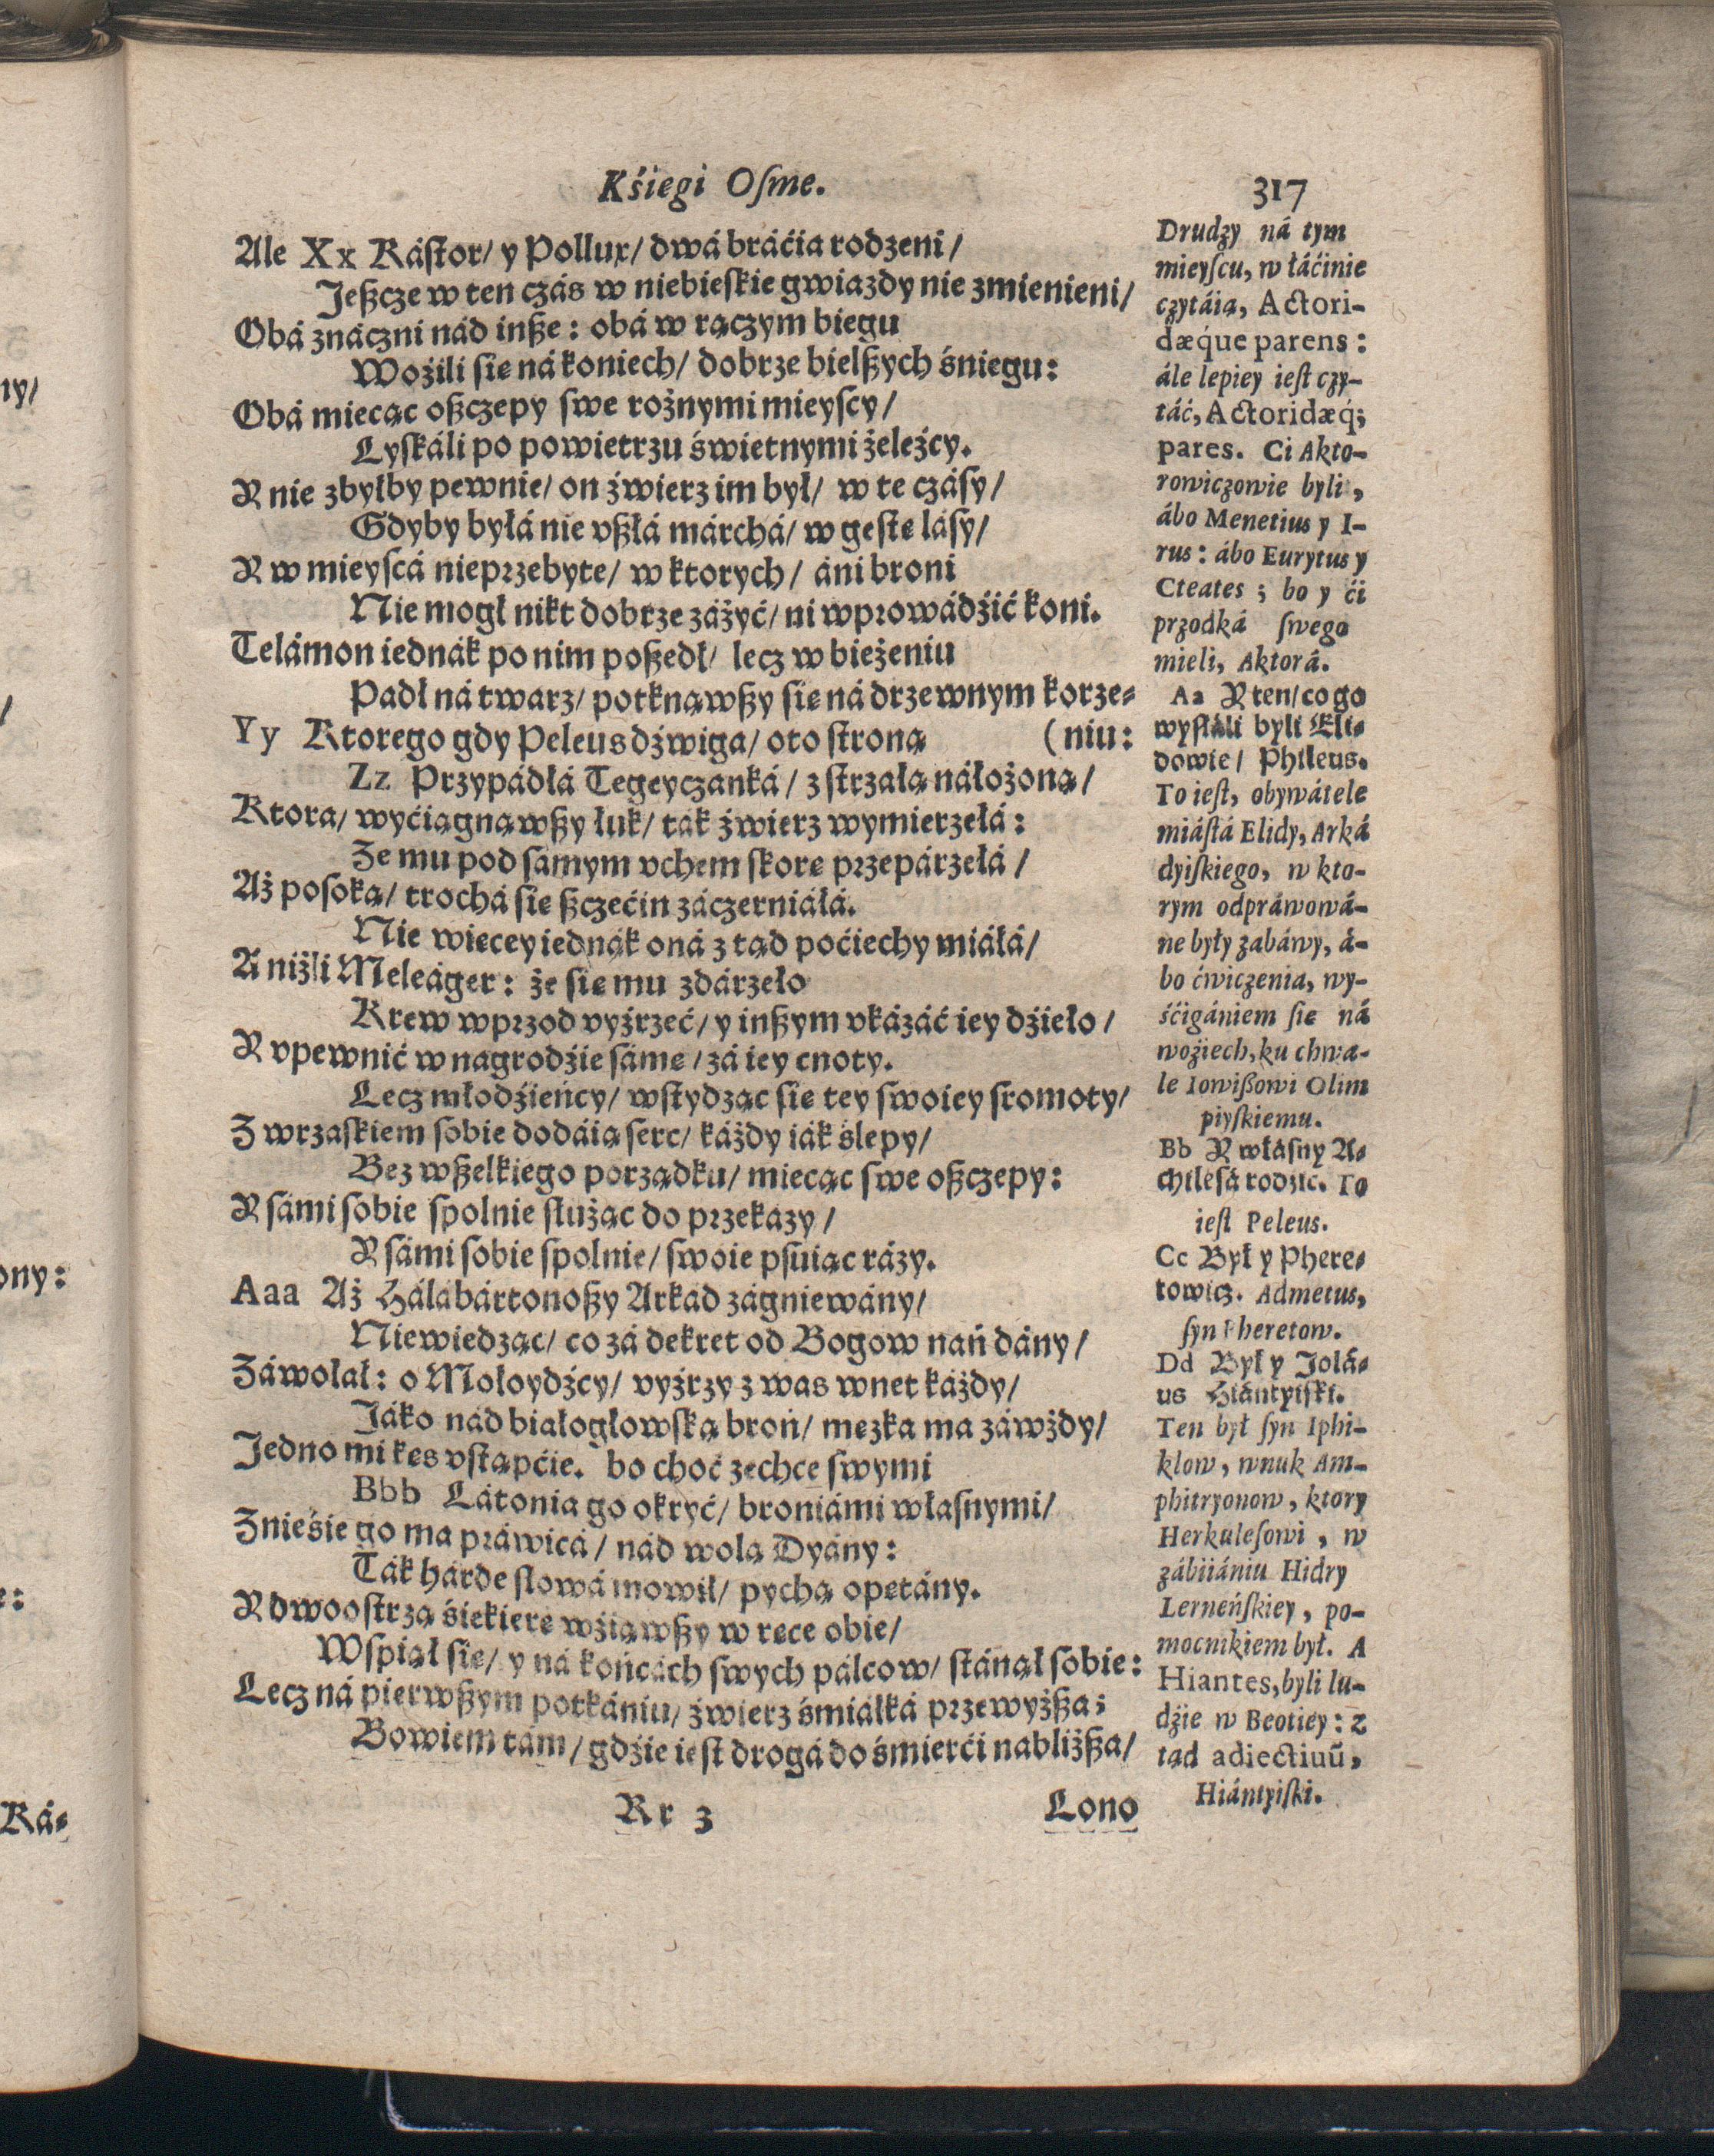 Kśiegi Oſme.
317
Ale Xx Káſtor/ y Pollux/ dwá bráćia rodzeni/
Jeßcze w ten czás w niebieſkie gwiazdy nie zmienieni/
Obá znáczni nád inße: obá w rączym biegu
Woźili ſie ná koniech/ dobrze bielßych śniegu:
Obá miecąc oßczepy ſwe rożnymi mieyſcy/
Lyſkáli po powietrzu świetnymi żeleźcy.
Y nie zbyłby pewnie/ on źwierz im był/ w te czáſy/
Gdyby byłá nie vßłá márchá/ w geſte láſy/
Y w mieyſcá nieprzebyte/ w ktorych/ áni broni
Nie mogł nikt dobrze záżyć/ ni wprowádźić koni.
Telámon iednák po nim poßedł/ lecz w bieżeniu
Padł ná twarz/ potknąwßy ſie ná drzewnym korze-
Yy Ktorego gdy Peleus dźwiga/ oto ſtroną (niu:
Zz Przypádłá Tegeyczanká/ z ſtrzałą náłożoną/
Ktora/ wyćiągnąwßy łuk/ ták źwierz wymierzełá:
Ze mu pod ſámym vchem ſkore przepárzełá/
Aż poſoką/ trochá ſie ßczećin záczerniáłá.
Nie wiecey iednák oná z tąd poćiechy miáłá/
Aniżli Meleáger: że ſie mu zdárzeło
Krew wprzod vyźrzeć/ y inßym vkázáć iey dźieło/
Y vpewnić w nagrodźie ſáme/ zá iey cnoty.
Lecz młodźieńcy/ wſtydząc ſie tey ſwoiey ſromoty/
Z wrzaſkiem ſobie dodáią ſerc/ káżdy iák ślepy/
Bez wßelkiego porządku/ miecąc ſwe oßczepy:
Y ſámi ſobie ſpolnie ſłużąc do przekázy/
Y ſámi ſobie ſpolnie/ ſwoie pſuiąc rázy.
Aaa Aż Hálábártonoßy Arkád zágniewány/
Niewiedząc/ co zá dekret od Bogow nań dány/
Záwołał: o Mołoydźcy/ vyźrzy z was wnet káżdy/
Jáko nád białogłowſką broń/ mezka ma záwżdy/
Jedno mi kes vſtąpćie. bo choć zechce ſwymi
Bbb Látonia go okryć/ broniámi własnymi/
Znieśie go ma práwicá/ nád wolą Dyány:
Ták hárde słowá mowił/ pychą opetány.
Y dwooſtrzą śiekiere wźiąwßy w rece obie/
Wſpiął ſie/ y ná końcách ſwych pálcow/ ſtánął ſobie:
Lecz ná pierwßym potkániu/ źwierz śmiáłká przewyżßa;
Bowiem tám/ gdźie ieſt drogá do śmierći nabliżßa/
Rr 3
Lono
Drudzy ná tym
mieyſcu, w łáćinie
czytáią, Actori-
dæq́ue parens:
ále lepiey ieſt czy-
táć, Actoridæq́;
pares. Ci Akto-
rowiczowie byli,
ábo Menetius y I-
rus: ábo Eurytus y
Cteates; bo y ći
przodká ſwego
mieli, Aktorá.
Aa Y ten/ co go
wyſłáli byli Eli-
dowie/ Phileus.
To ieſt, obywátele
miáſtá Elidy, Arká
dyiſkiego, w kto-
rym odpráwowá-
ne były zabáwy, á-
bo ćwiczenia, wy-
śćigániem ſie ná
woźiech, ku chwa-
le Iowißowi Olim
piyſkiemu.
Bb Y włáſny A-
chileſá rodzic. To
ieſt Peleus.
Cc Był y Phere-
towicz. Admetus,
ſyn Pheretow.
Dd Był y Jolá-
us Hiántyiſki.
Ten był ſyn Iphi-
klow, wnuk Am-
phitryonow, ktory
Herkuleſowi, w
zábiiániu Hidry
Lerneńſkiey, po-
mocnikiem był. A
Hiantes, byli lu-
dźie w Beotiey: z
tąd adiectiuū,
Hiántyiſki.
ny/
/
ony:
e:
Ká-